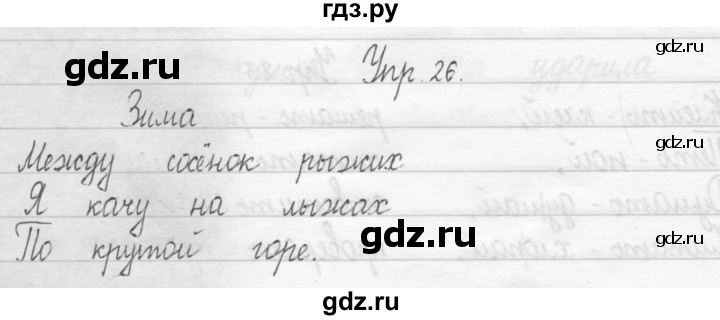 гдз.ру
gdz.ru
gdz.ru
Упр. 26.
Зима
gdz.ru
Между сосёнок рыжих
Я качу на лыжах
gdz.ru
gdz.ru
По крутой горе.
gdz.ru